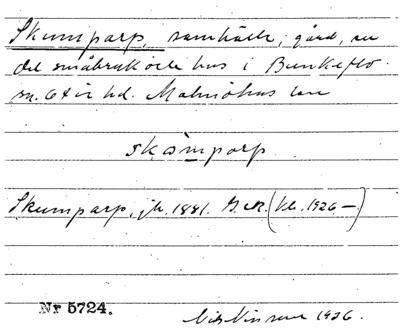 Skumparp, samhälle, gård, en
del småbruk och hus i Bunkeflo
sn. Oxie hd. Malmöhus län
skåmparp.
Skumparp, jb. 1881. GSR. (kb. 1926 –)
Nr 5724.
1926.